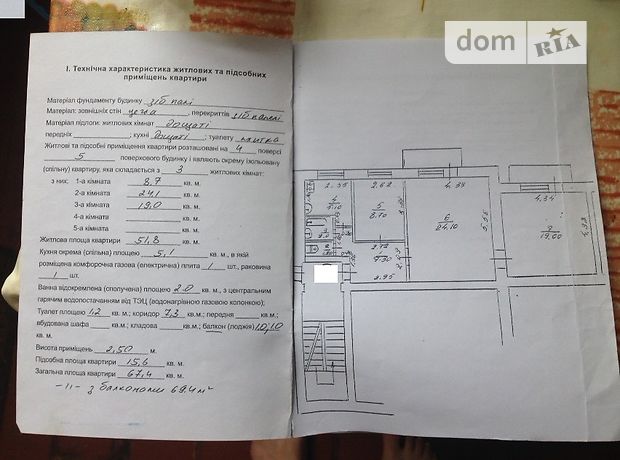 dom RIA
І. Технічна характеристика житлових та підсобних
приміщень квартири
Матеріал фундаменту будинку з/б палі
Матеріал: зовнішніх стін цегла, перекриттів з/б панелі
Матеріал підлоги: житлових кімнат дощаті
передніх ; кухні дощаті; туалету плитка
Житлові та підсобні приміщення квартири розташовані на 4 поверсі
5 поверхового будинку і являють окрему ізольовану
(спільну) квартиру, яка складається з 3 житлових кімнат:
з них: 1-а кімната 8,7 кв. м.
2-а кімната 24,1 кв. м.
3-а кімната 19,0 кв. м.
4-а кімната кв. м.
5-а кімната кв. м.
Житлова площа квартири 51,8 кв. м.
Кухня окрема (спільна) площею 5,1 кв. м., в якій
розміщена комфорочна газова (електрична) плита 1 шт., раковина
1 шт.
Ванна відокремлена (сполучена) площею 2.0 кв. м., з центральним
гарячим водопостачанням від ТЭЦ (водонагрівною газовою колонкою);
Туалет площею 1,2 кв. м.; коридор 7,3 кв.м.; передня кв.м.;
вбудована шафа кв.м.; кладова кв.м.; балкон (лоджія) 1,0; 1,0
кв. м.
Висота приміщень 2,50 м.
Підсобна площа квартири 15,6 кв. м.
Загальна площа квартири 67,4 кв. м.
-"- з балконами 69.4 м²
2.35 2,62 4,34 4,34
4
5.10
5
8.70
6
24.10
5,55
19.00
2.72
7.30
2.95